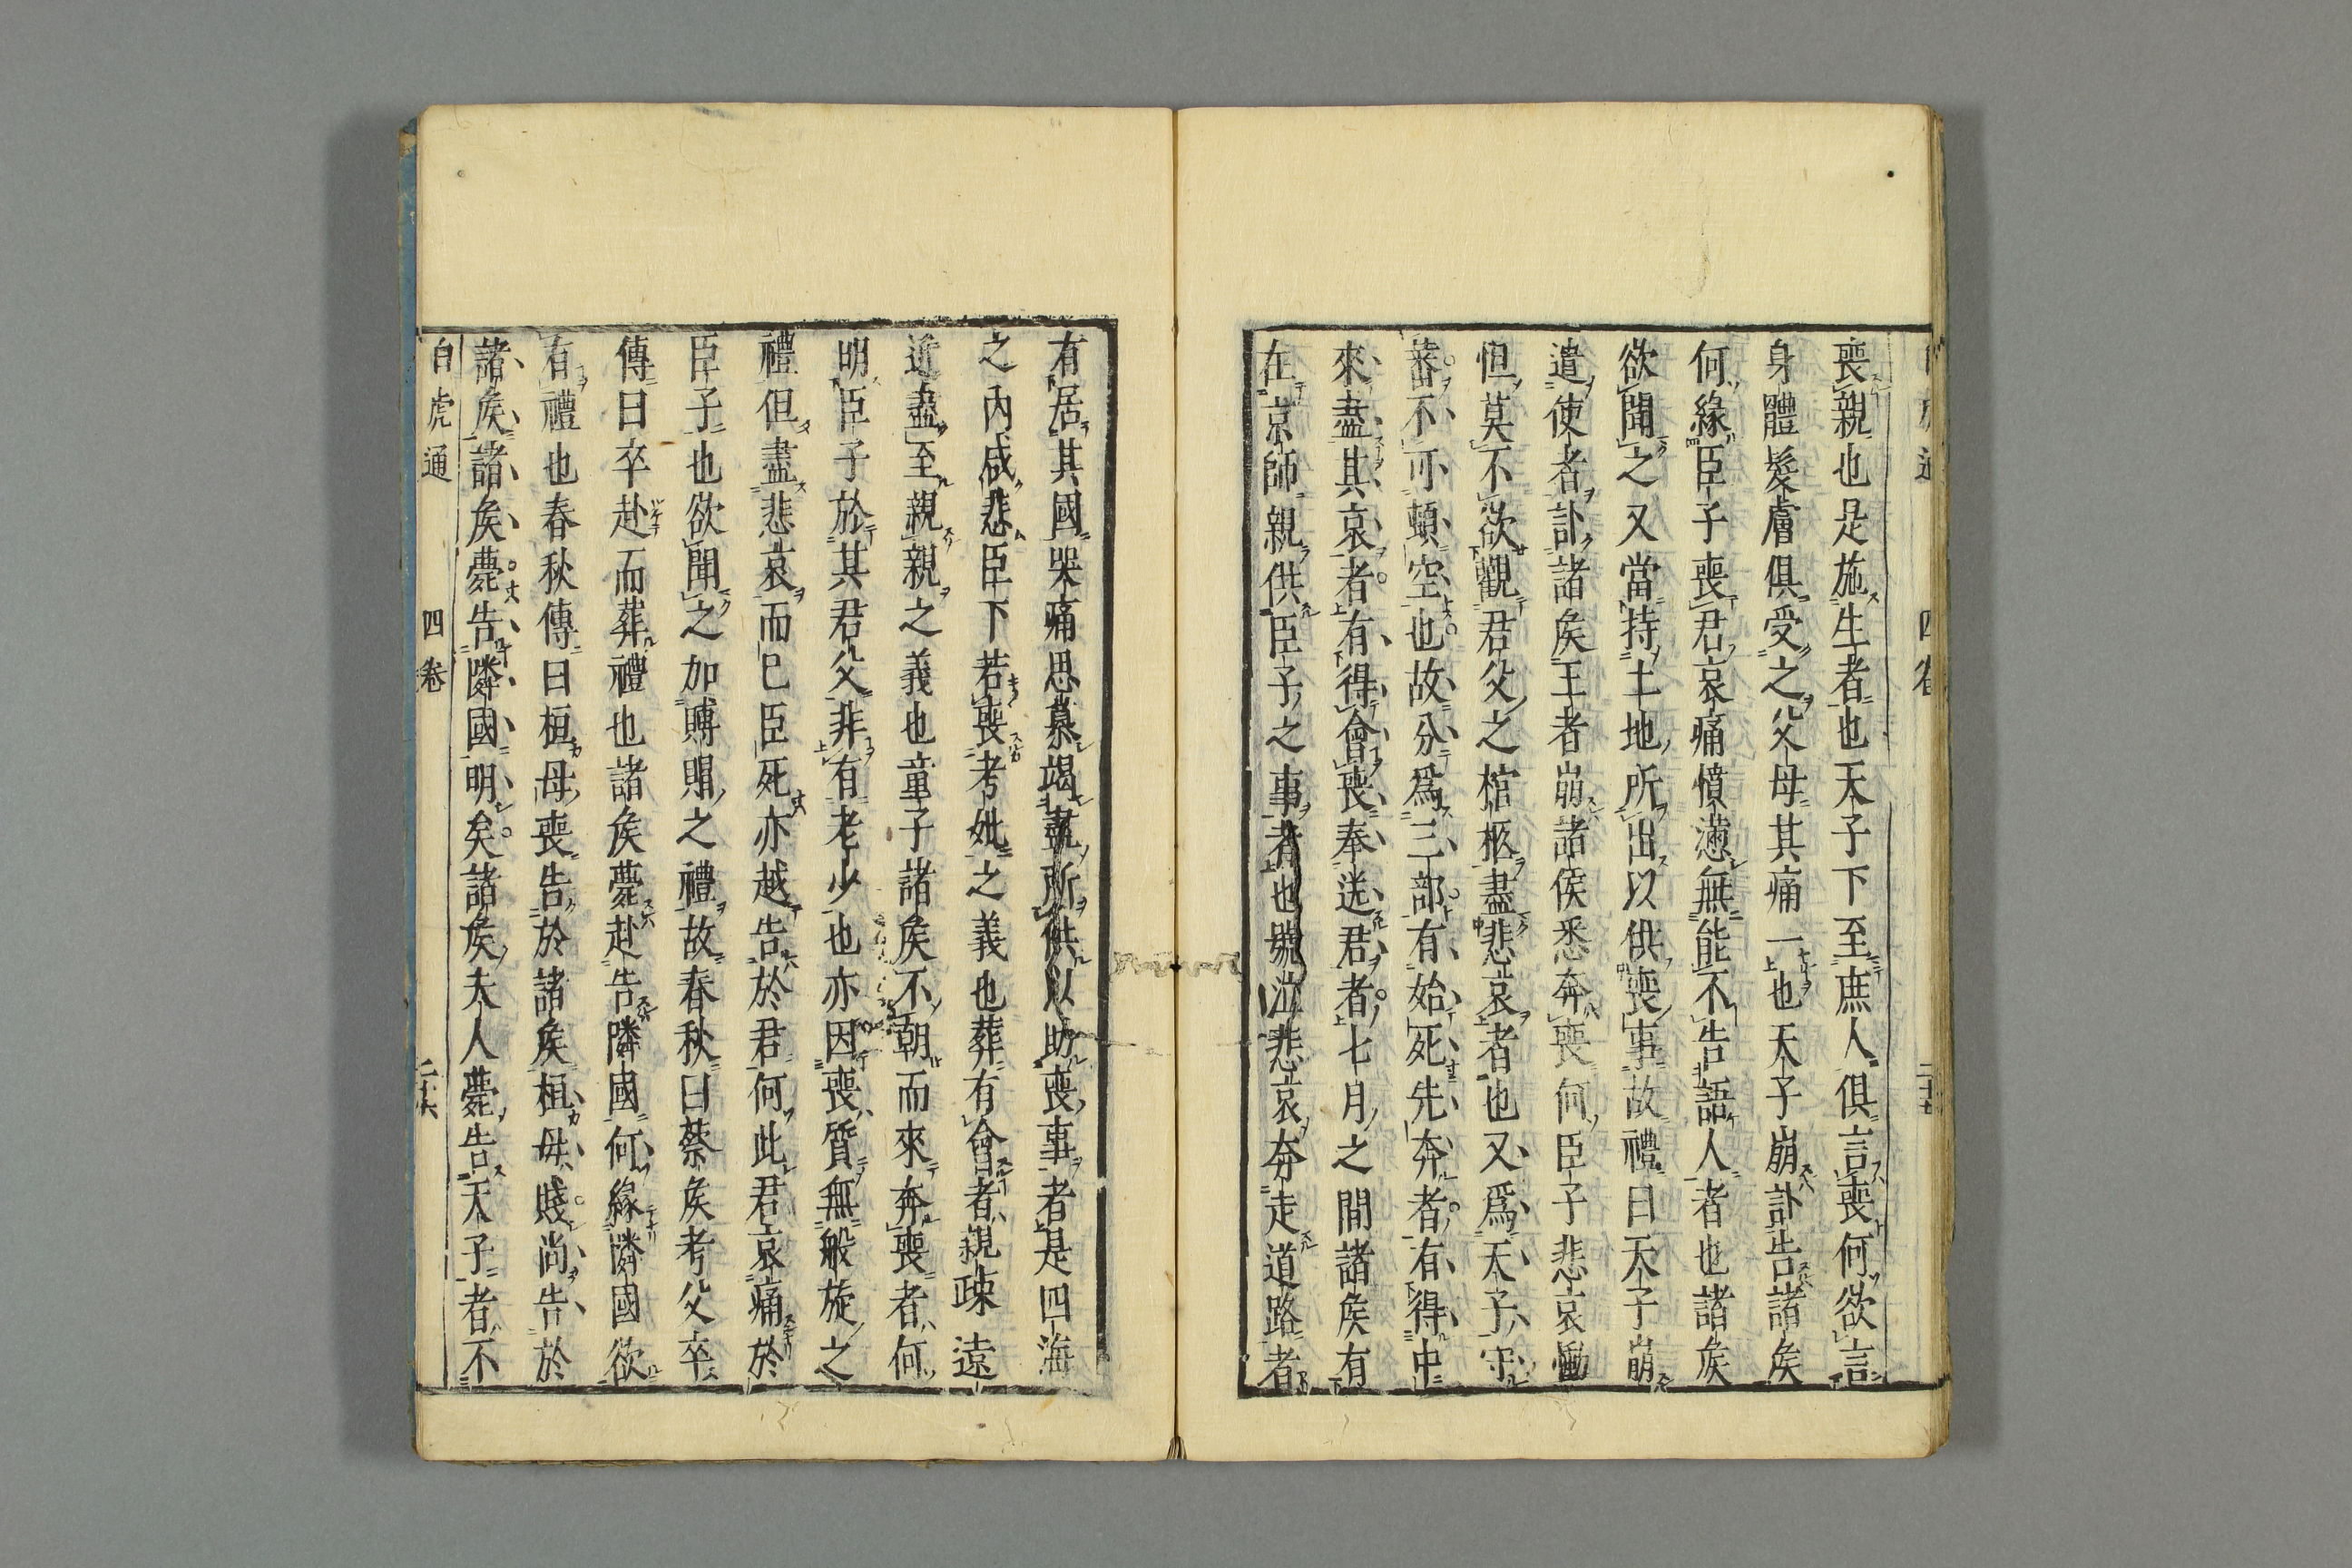 喪親也是施生者也天子下至庶人俱言喪何欲言
身體髮膚俱受之父母其痛一也天子崩訃告諸矦
何緣臣子喪君哀痛憤懣無能不告語人者也諸矦
欲聞之又當持土地所出以供喪事故禮曰天子崩
遣使者訃諸矦王者崩諸侯悉奔喪何臣子悲哀慟
怛莫不欲觀君父之棺柩盡悲哀者也又爲天子守
蕃不可頓空也故分爲三部有始死先奔者有得中
來盡其哀者有得會喪奉送君者七月之間諸矦有
在京師親供臣子之事者也號泣悲哀奔走道路者
有居其國哭痛思慕竭盡所供以助喪事者是四海
之內咸悲臣下若喪考妣之義也葬有會者親疎遠
近盡至親親之義也童子諸矦不朝而來奔喪者何
明臣子於其君父非有老少也亦因喪質無般旋之
禮但盡悲哀而已臣死亦越告於君何此君哀痛於
臣子也欲聞之加賻賵之禮故春秋曰蔡矦考父卒
傳曰卒赴而葬禮也諸矦薨赴告隣國何緣隣國欲
有禮也春秋傳曰桓母喪告於諸矦桓母賤尚告於
諸矦諸矦薨告隣國明矣諸矦夫人薨告天子者不
白虎通 四卷 二十六